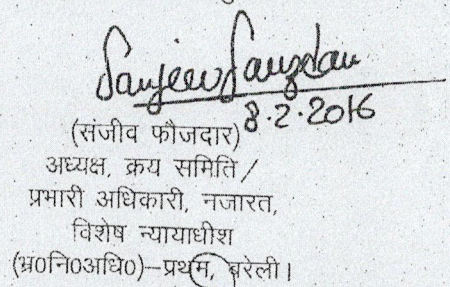 Sanjeev Fauzdar
8.2.2016
(संजीव फौजदार)
अध्यक्ष, क्रय समिति/
प्रभारी अधिकारी, नजारत,
विशेष न्यायाधीश
(भ्र०नि०अधि०)–प्रथम, बरेली।